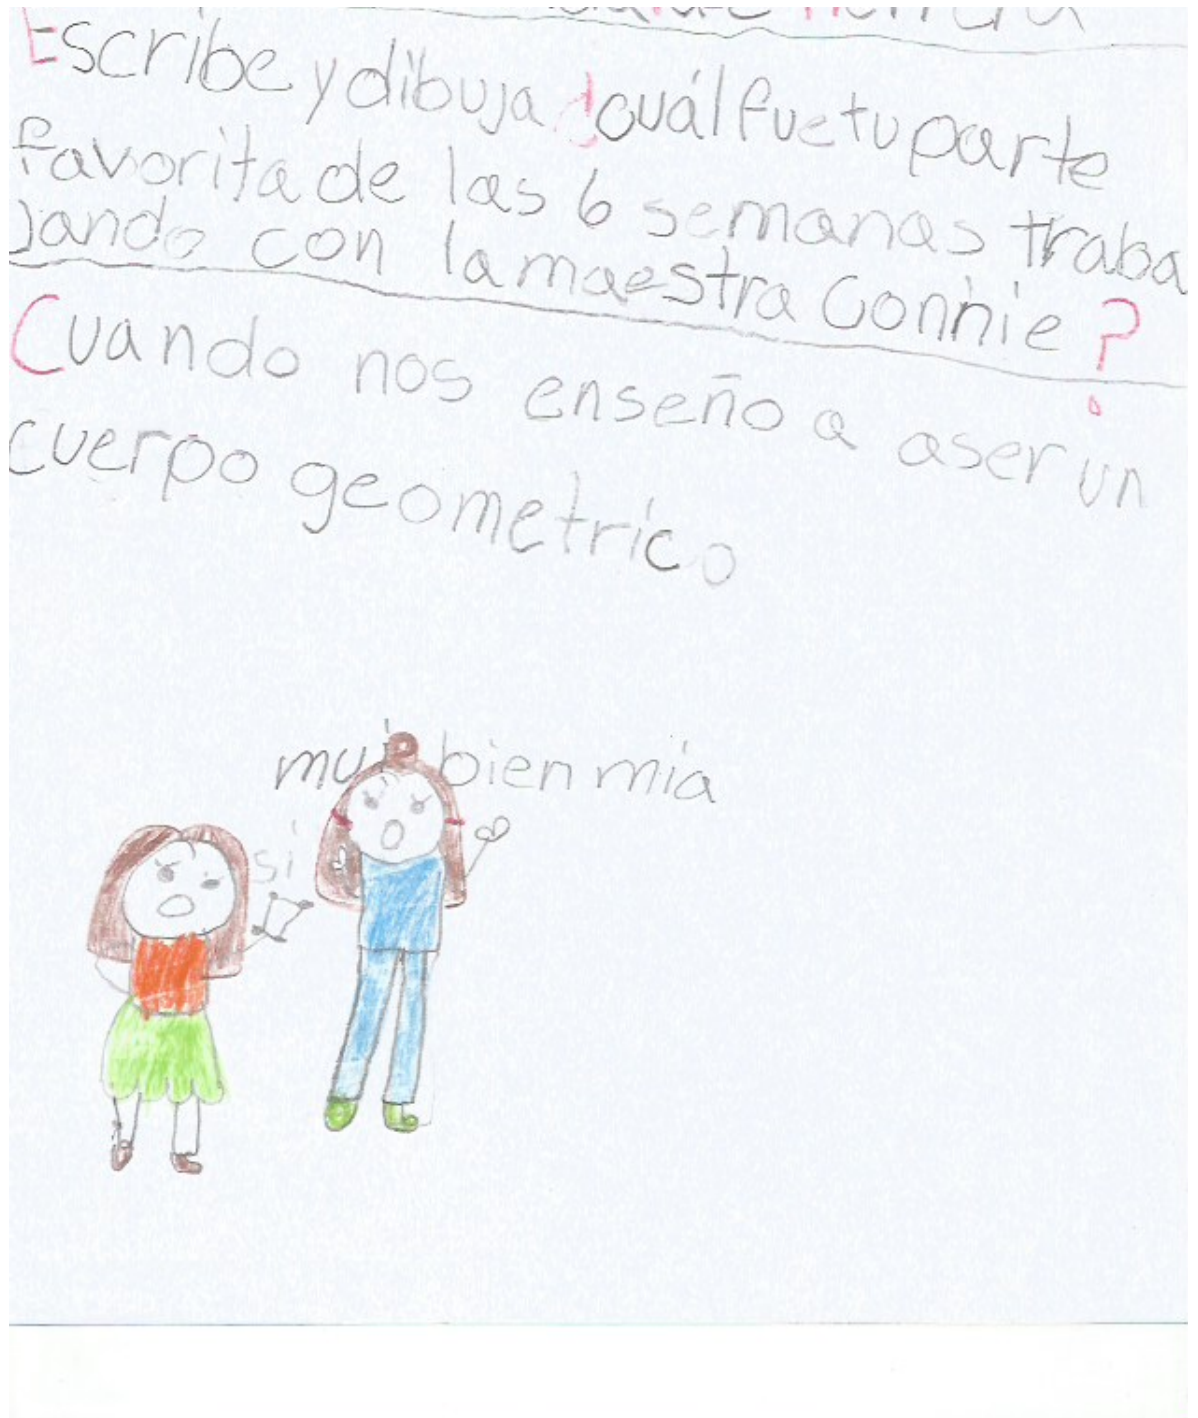 Escribe y dibuja ¿cuál fue tu parte
favorita de las 6 semanas traba
jando con la maestra Connie?
Cuando nos enseño a aser un
cuerpo geometrico
mui bien mia
si